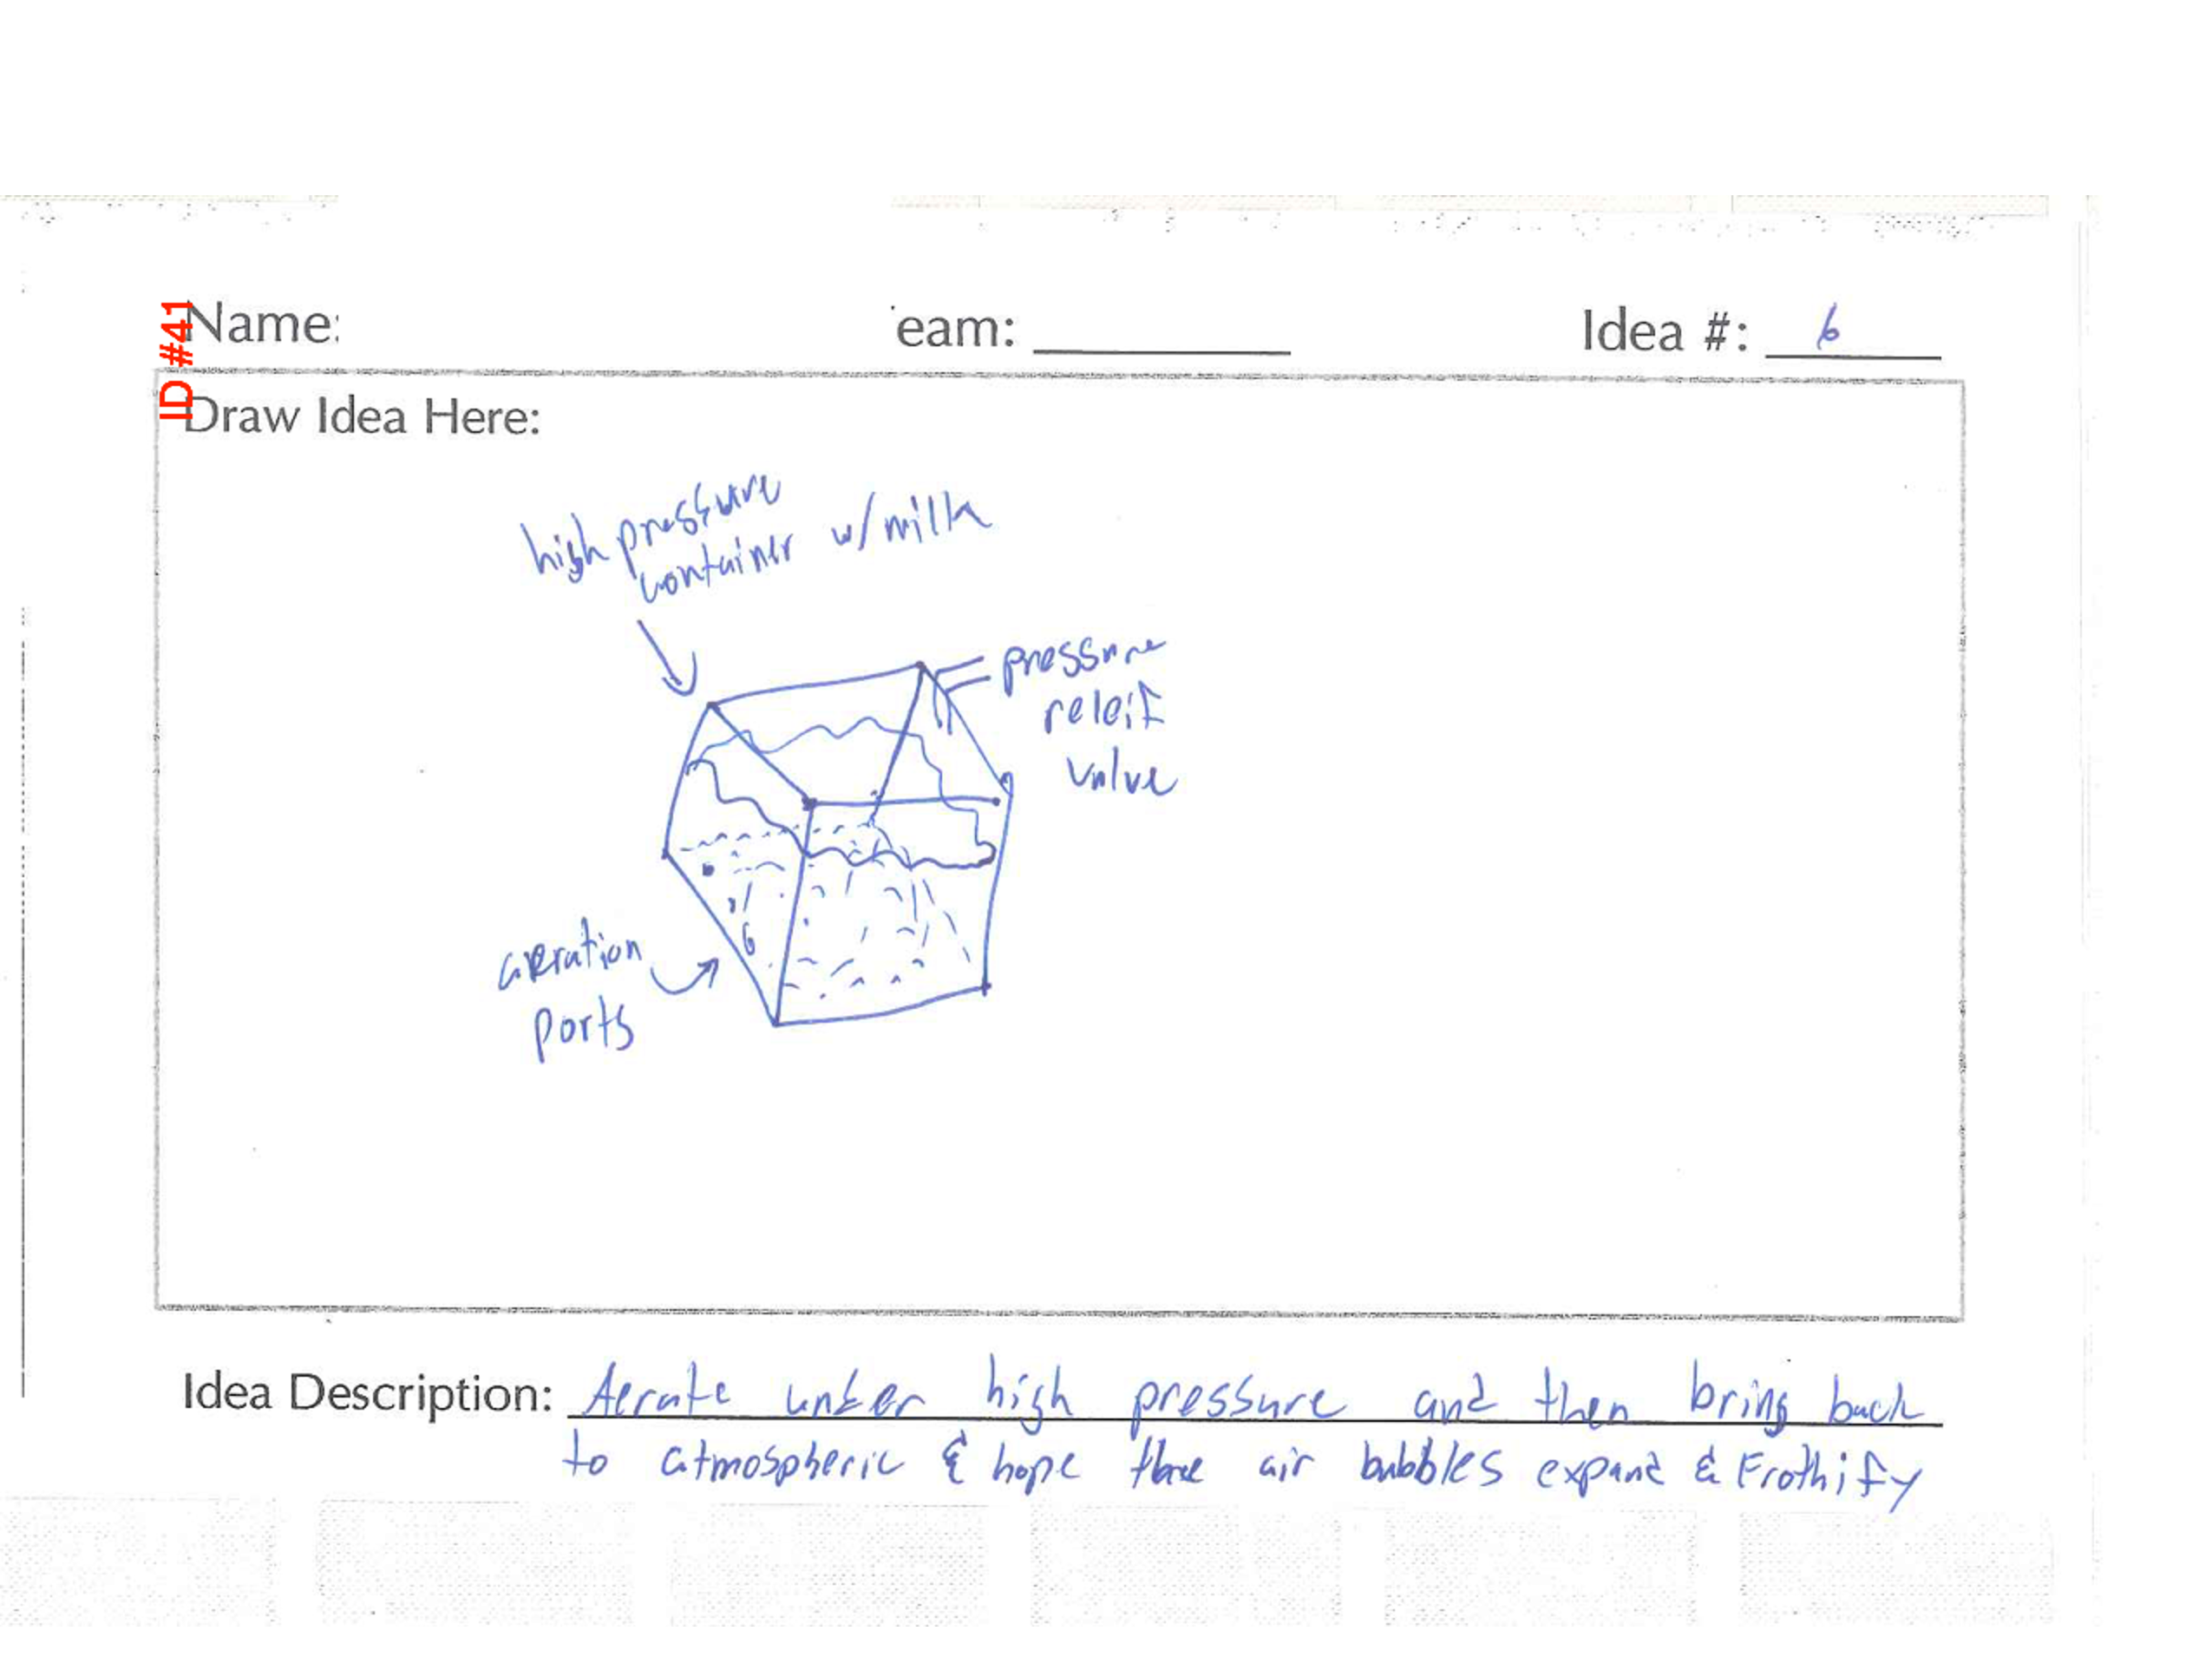 ID #41
Name:
eam:
Idea #: 6
Draw Idea Here:
high pressure
container w/ milk
pressure
releif
valve
aeration
ports
Idea Description: Aerate under high pressure and then bring back
to atmospheric & hope the air bubbles expand & Frothify